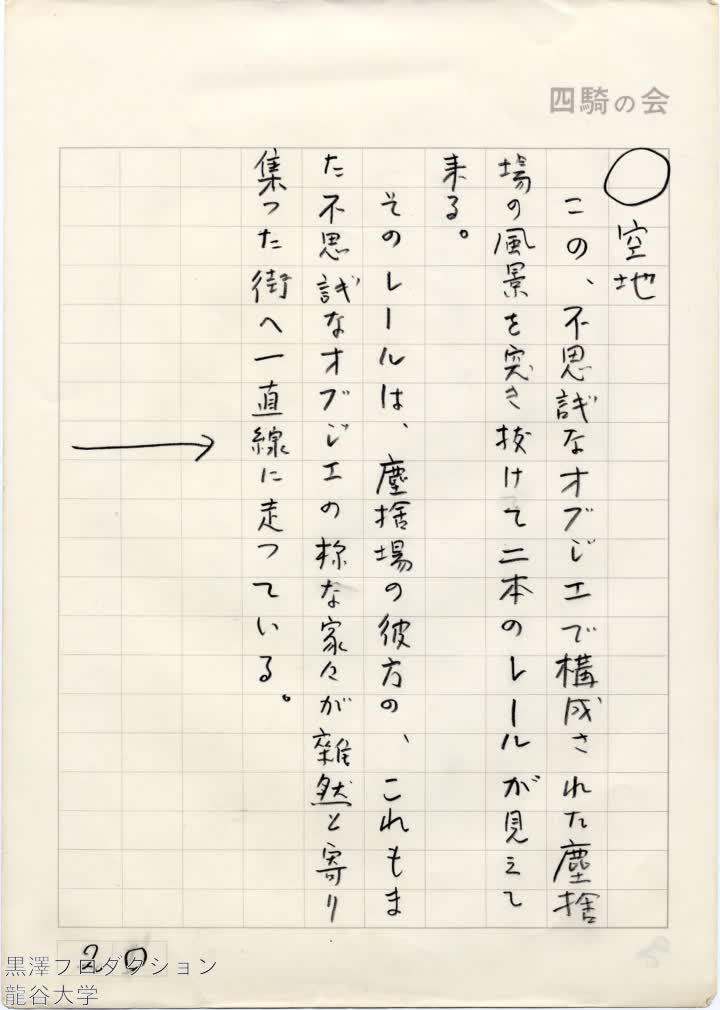 四騎の会
○ 空地
この、不思議なオブジエで構成された塵捨
場の風景を突き抜けて二本のレールが見えて
来る。
そのレールは、塵捨場の彼方の、これもま
た不思議なオブジエの様な家々が雑然と寄り
集った街へ一直線に走つている。
20
黒澤プロダクション
龍谷大学